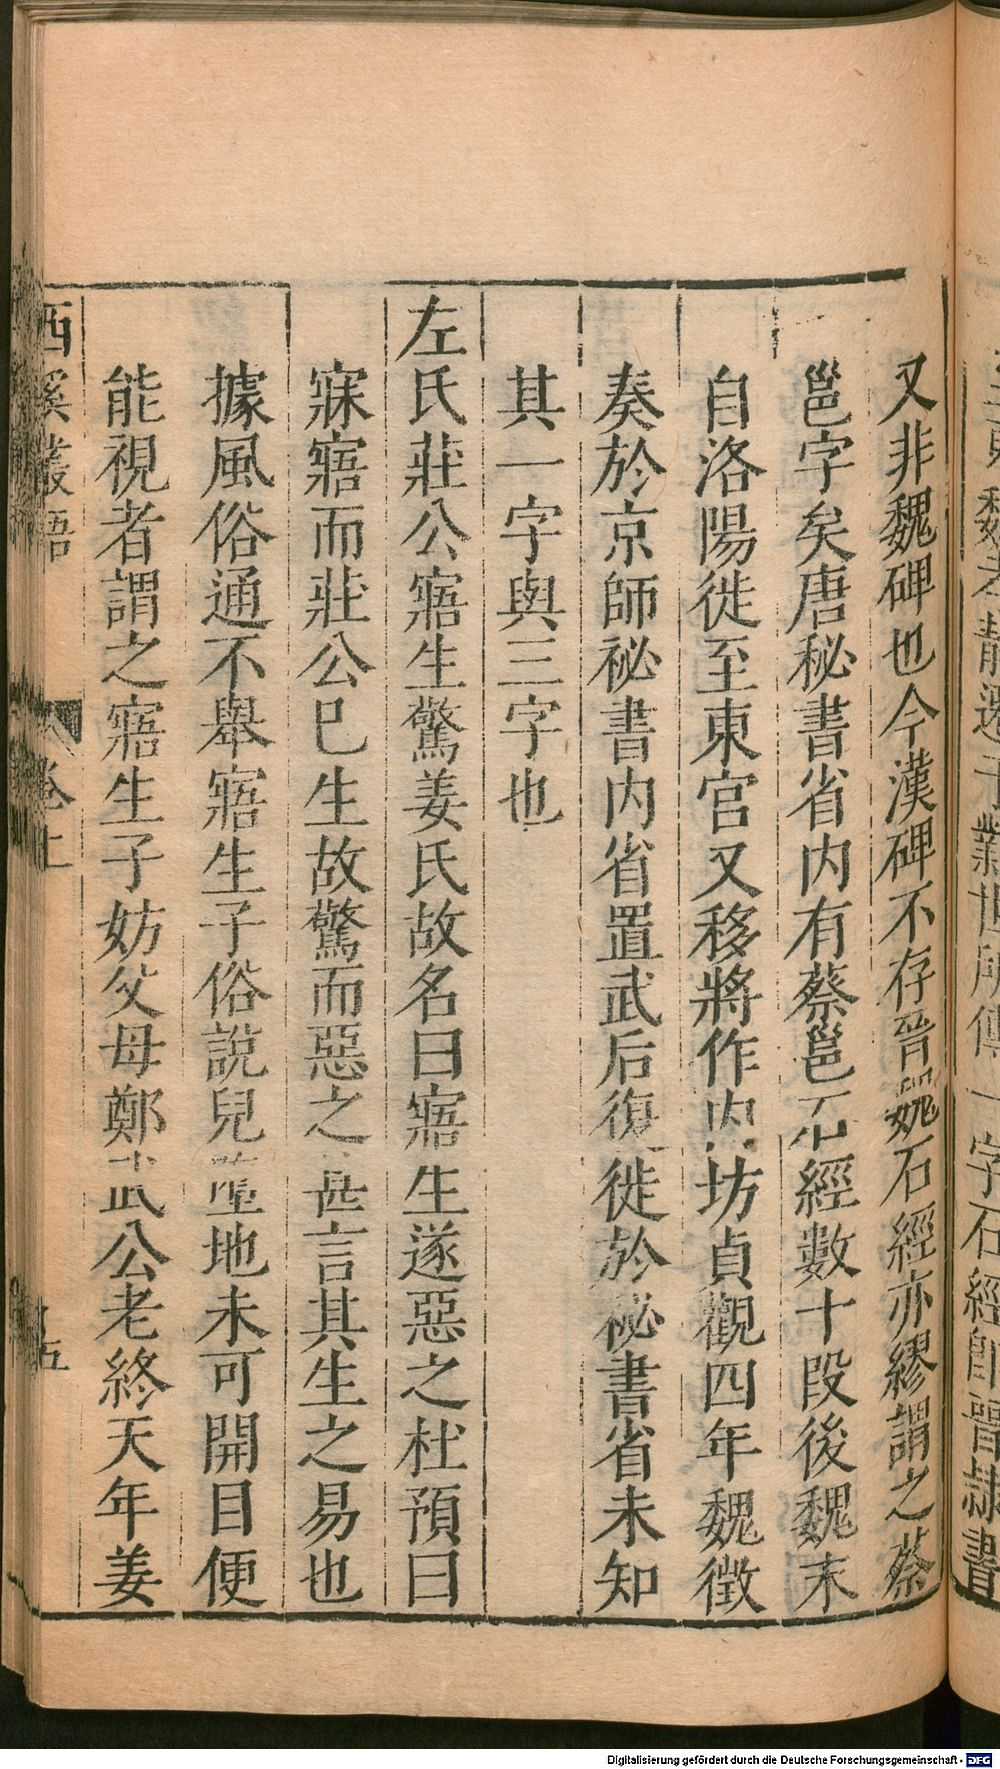 又非魏碑也今漢碑不存晉魏石經亦繆謂之蔡
邕字矣唐秘書省内有蔡邕石經數十段後魏末
自洛陽徙至東宫又移將作内坊貞觀四年魏徵
奏於京師祕書内省置武后復徙於秘書省未知
其一字與三字也
左氏莊公寤生驚姜氏故名曰寤生遂惡之杜預曰
寐寤而莊公已生故驚而惡之甚言其生之易也
據風俗通不舉寤生子俗說兒墮地未可開目便
能視者謂之寤生子妨父母鄭武公老終天年姜
西溪叢語 卷上 五
Digitalisierung gefördert durch die Deutsche Forschungsgemeinschaft - DFG